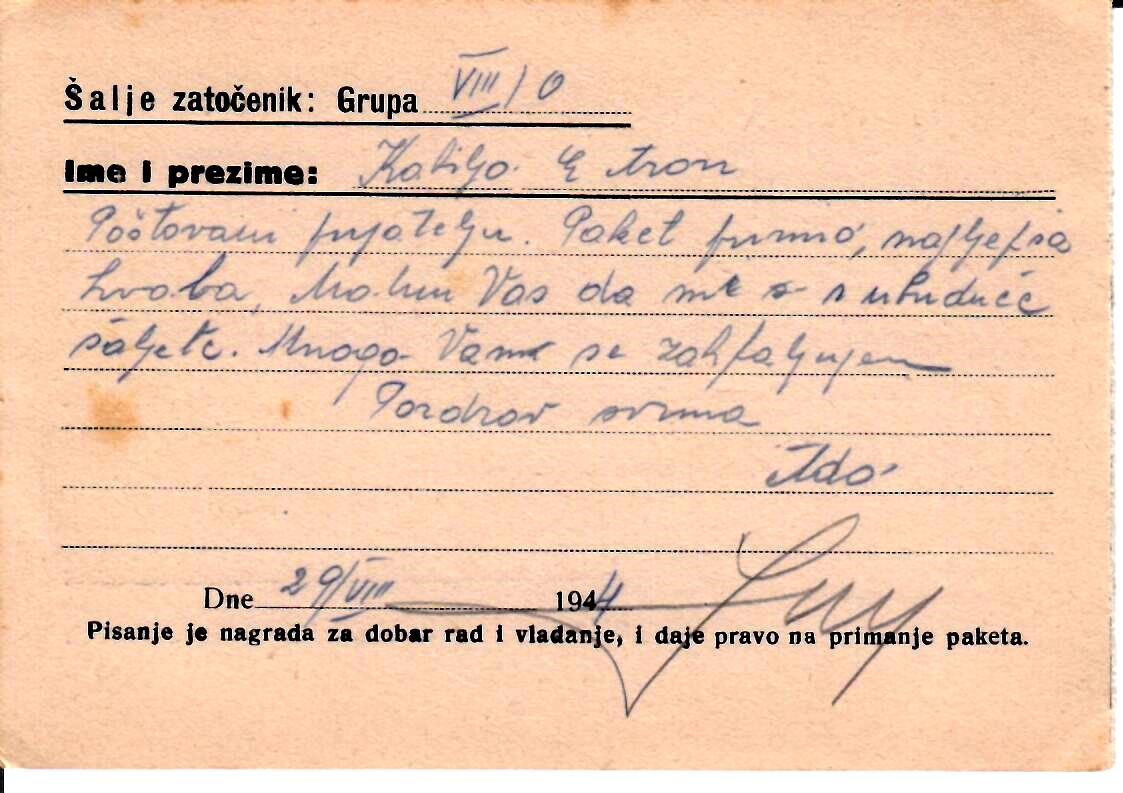 Šalje zatočenik: Grupa VIII/0
Ime i prezime: Kabiljo E Aron
Poštovani prijatelju. Paket primio, najljepša
hvala, Molim Vas da mi i u buduće
šaljete. Mnogo Vam se zahfaljujem
Pozdrav svima
Ado
Dne 29/VIII 1944
Pisanje je nagrada za dobar rad i vladanje, i daje pravo na primanje paketa.